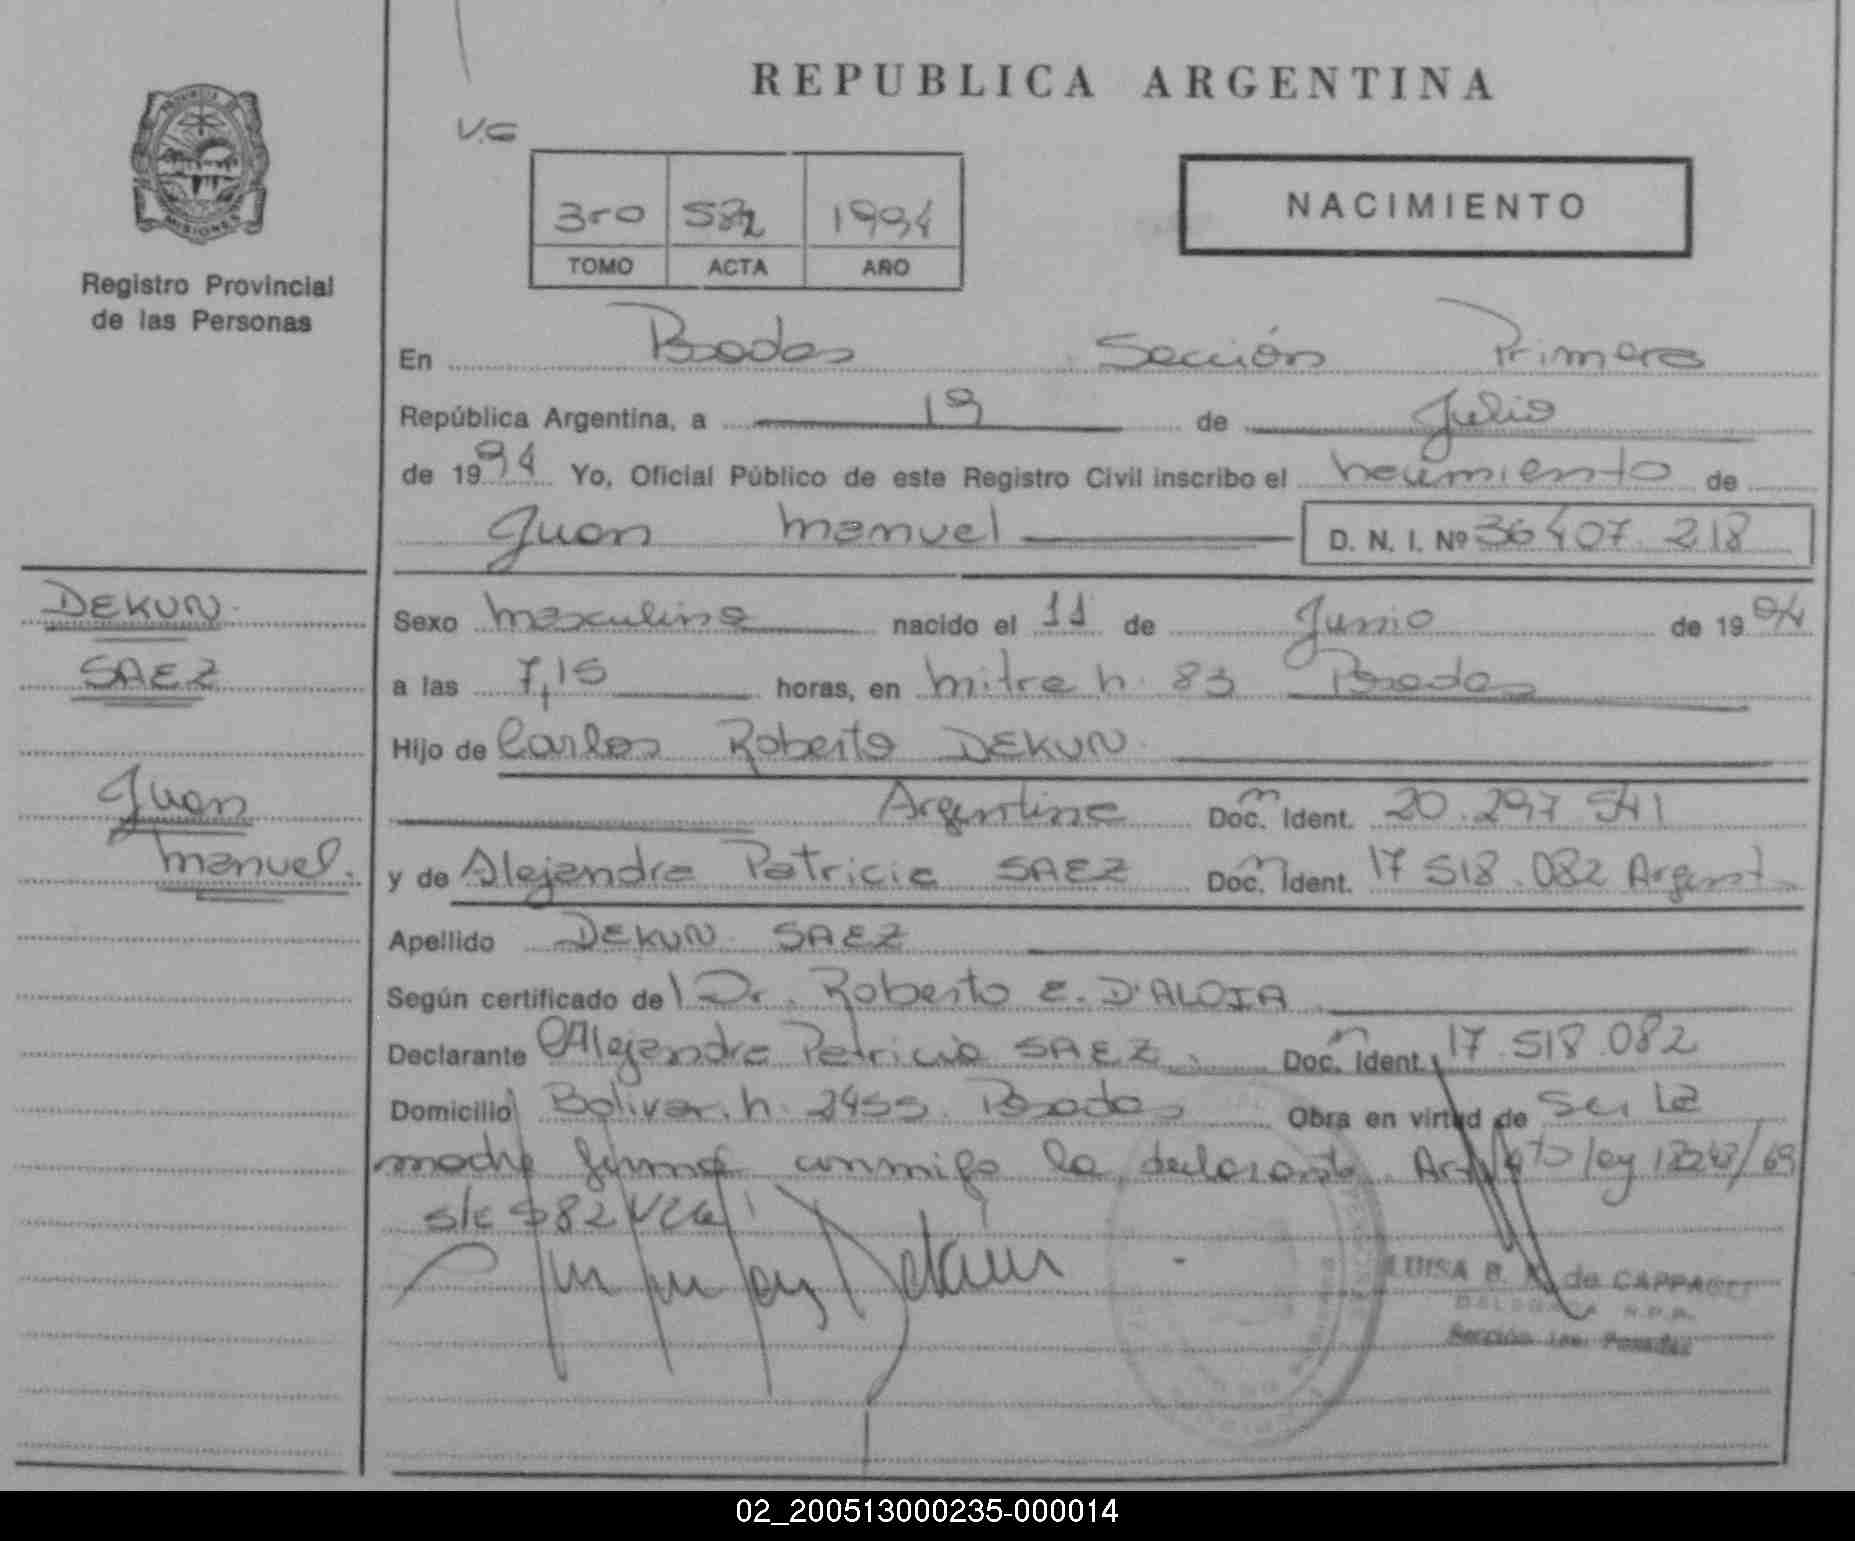 REPUBLICA ARGENTINA
V.G
NACIMIENTO
3ro 582 1994
TOMO ACTA AÑO
PROVINCIA DE
MISIONES
Registro Provincial
de las Personas
En Posadas Sección Primera
República Argentina, a 19 de Julio
de 1994 Yo, Oficial Público de este Registro Civil inscribo el nacimiento de
Juan Manuel D. N. I. Nº 36 407. 218
DEKUN
SAEZ
Juan
Manuel.
Sexo Masculino nacido el 11 de Junio de 1994
a las 7,15 horas, en Mitre n. 83 Posadas
Hijo de Carlos Roberto DEKUN
Argentino Doc. Ident. 20.297 541
y de Alejandra Patricia SAEZ Doc. Ident. 17 518.082 Argent.
Apellido DEKUN SAEZ
Según certificado del Dr. Roberto E. D'ALOIA
Declarante Alejandra Patricia SAEZ. Doc. Ident. 17.518.082
Domicilio Bolivar n. 2455. Posadas Obra en virtud de ser la
madre firma conmigo la declarante. Art 4to ley 18248/69
s/c 582 Vale
LUISA B. de CAPPAGLI
Sección 1ra. Posadas
02_200513000235-000014